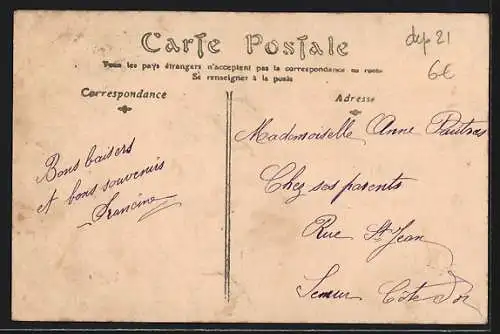 Carte Postale
dep 21
6€
Tous les pays étrangers n'acceptent pas la correspondance au recto
Se renseigner à la poste
Correspondance
Adresse
Bons baisers
et bons souvenirs
Francine
Mademoiselle Anne Pautras
Chez ses parents
Rue St Jean
Semur Côte d'Or